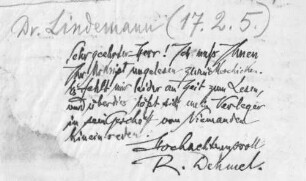 Dr. Lindemann (17.2.5.)
Sehr geehrter Herr! Ich muß Ihnen
Ihr Mskript ungelesen zurückschicken.
Es fehlt mir leider an Zeit zum Lesen,
und überdies läßt sich mein Verleger
in sein Geschäft von Niemandem
hineinreden.
Hochachtungsvoll
R. Dehmel.